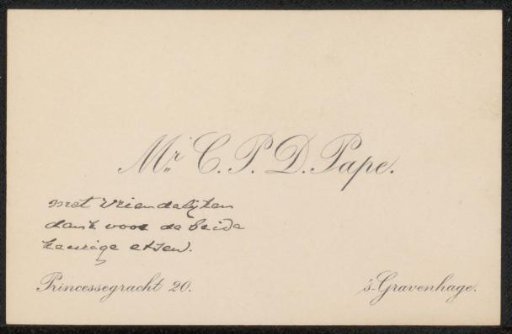 Mr. C. P. D. Pape.
met vriendelyken
dank voor de beide
keurige etsen.
Princessegracht 20.
's-Gravenhage.